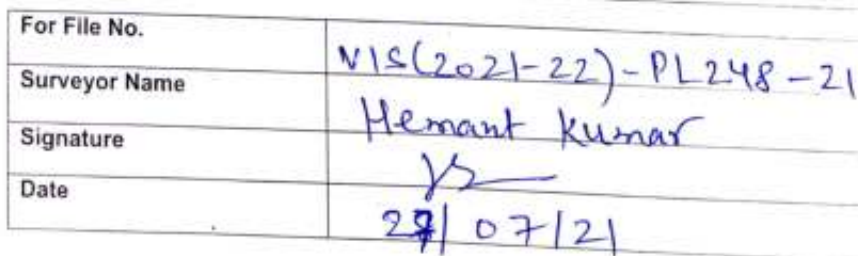 For File No. VIS(2021-22)-PL248-21
Surveyor Name Hemant Kumar
Signature
Date /07/21